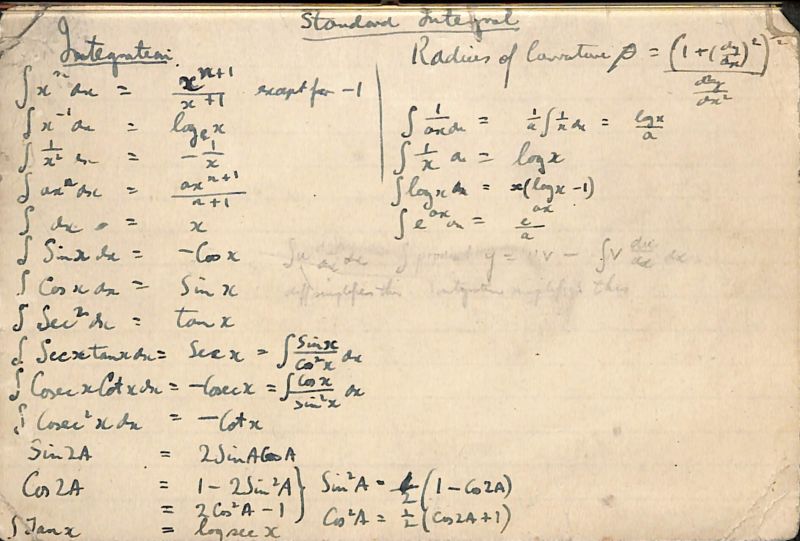 Standard Integral
Integration.
∫ x^n dx = x^(n+1)/(x+1) except for -1
∫ x^-1 dx = log_e x
∫ 1/x^2 dx = -1/x
∫ ax^n dx = ax^(n+1)/(n+1)
∫ dx = x
∫ Sin x dx = -Cos x
∫ Cos x dx = Sin x
∫ Sec^2 dx = tan x
∫ Sec x tan x dx = Sec x = ∫ Sin x/Cos^2 x dx
∫ Cosec x Cot x dx = -Cosec x = ∫ Cos x/Sin^2 x dx
∫ Cosec^2 x dx = -Cot x
Sin 2A = 2 Sin A Cos A
Cos 2A = 1 - 2 Sin^2 A } Sin^2 A = 1/2 (1 - Cos 2A)
= 2 Cos^2 A - 1 } Cos^2 A = 1/2 (Cos 2A + 1)
∫ Tan x = log sec x
Radius of Curvature ρ = (1 + (dy/dx)^2)^(3/2) / (d^2y/dx^2)
∫ 1/ax dx = 1/a ∫ 1/x dx = log x/a
∫ 1/x dx = log x
∫ log x dx = x(log x - 1)
∫ e^ax dx = e^ax/a
∫ product y = uv - ∫ v du/dx dx
diff simplifies this